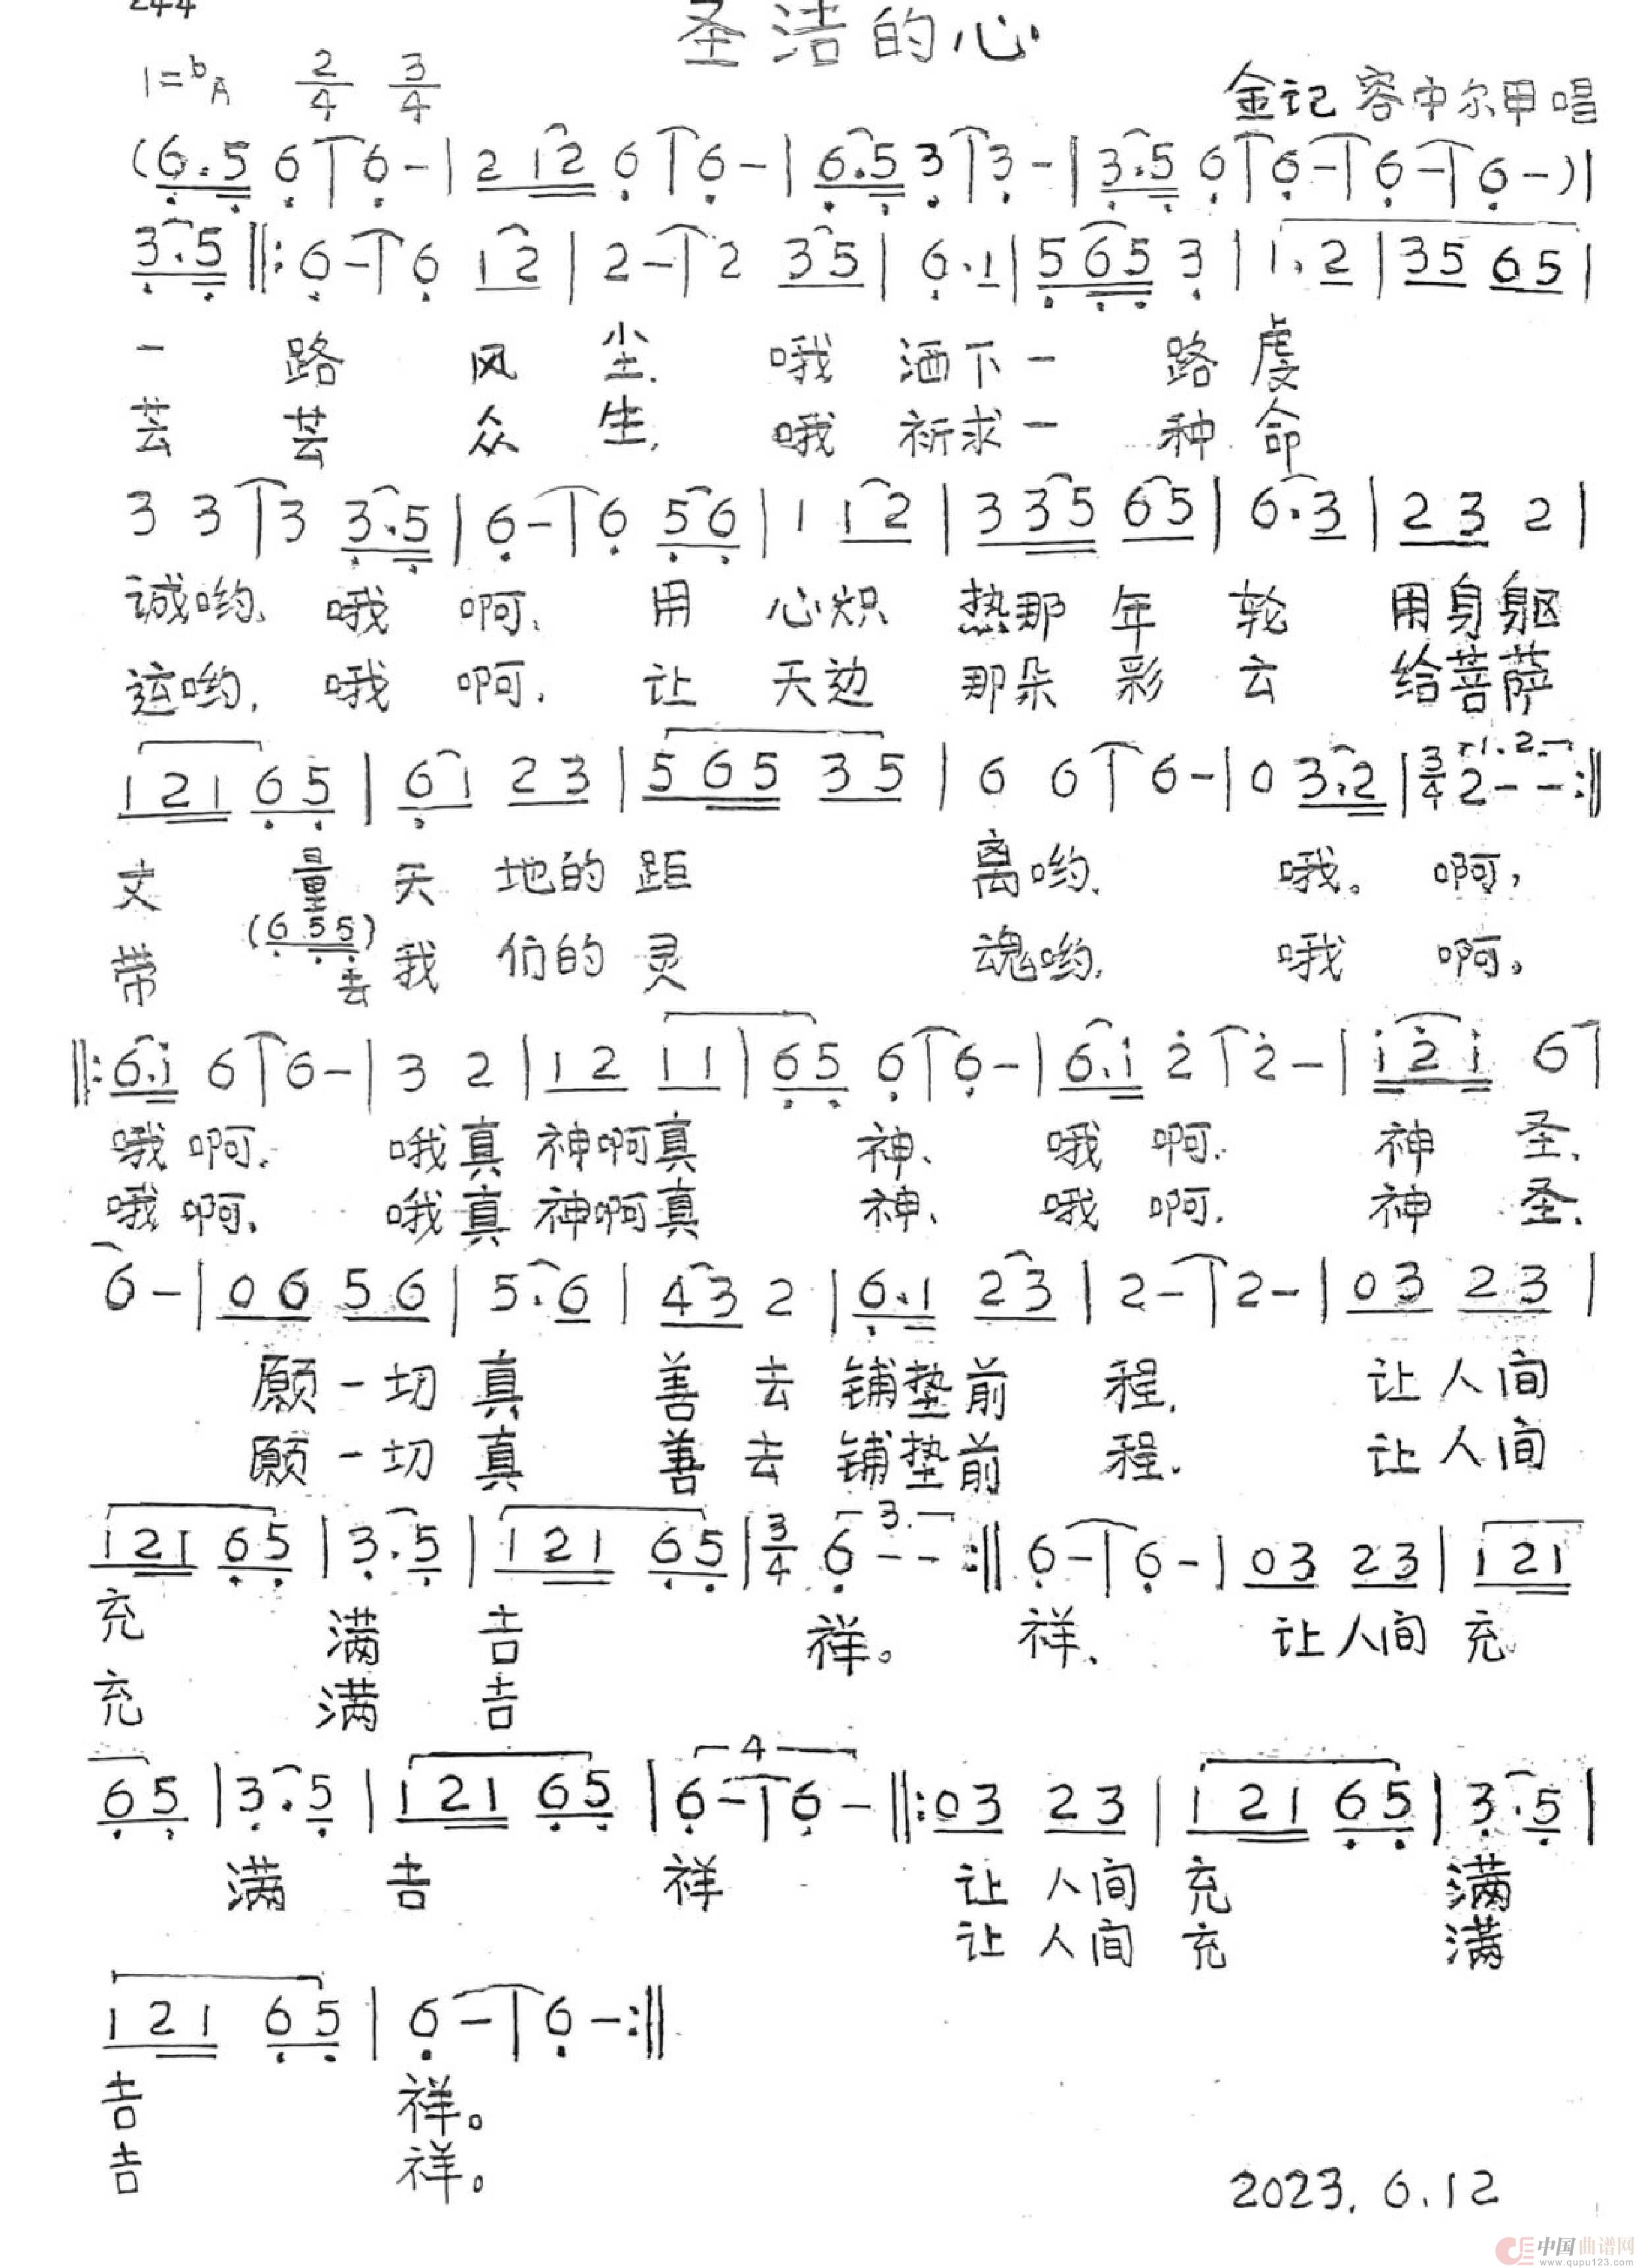 244
圣洁的心
1=bA 2/4 3/4
金记 容中尔甲唱
(6.5 6 | 6 - | 2 12 6 | 6 - | 6.5 3 | 3 - | 3.5 6 | 6 - | 6 - | 6 -) |
3.5 ‖: 6 - | 6 12 | 2 - | 2 35 | 6.1 | 565 3 | 1.2 | 35 65 |
一 路 风 尘. 哦 洒下一 路 虔
芸 芸 众 生, 哦 祈求一 种 命
3 3 | 3 3.5 | 6 - | 6 56 | 1 12 | 3 35 65 | 6.3 | 23 2 |
诚哟. 哦 啊. 用 心炽 热那 年 轮 用身躯
运哟, 哦 啊. 让 天边 那朵 彩 云 给菩萨
121 65 | 61 23 | 565 35 | 6 6 | 6 - | 0 3.2 | 3/4 1.2. 2 - - :‖
丈 量 天 地的 距 离哟. 哦。 啊,
(6 55)
带 去 我 们的 灵 魂哟, 哦 啊。
‖: 6.i 6 | 6 - | 3 2 | 12 11 | 65 6 | 6 - | 6.i 2 | 2 - | i2i 6 |
哦 啊. 哦真 神啊真 神、 哦 啊. 神 圣.
哦 啊. 哦真 神啊真 神、 哦 啊. 神 圣.
6 - | 06 56 | 5.6 | 43 2 | 6.1 23 | 2 - | 2 - | 03 23 |
愿一切 真 善 去 铺垫前 程. 让人间
愿一切 真 善 去 铺垫前 程. 让人间
121 65 | 3.5 | 121 65 | 3/4 3. 6 - - :‖ 6 - | 6 - | 03 23 | 121
充 满 吉 祥。 祥、 让人间 充
充 满 吉
65 | 3.5 | 121 65 | 4 6 - | 6 - ‖: 03 23 | 121 65 | 3.5 |
满 吉 祥 让 人间 充 满
让 人间 充 满
121 65 | 6 - | 6 - :‖
吉 祥。
吉 祥。
2023. 6.12
中国曲谱网
www.qupu123.com